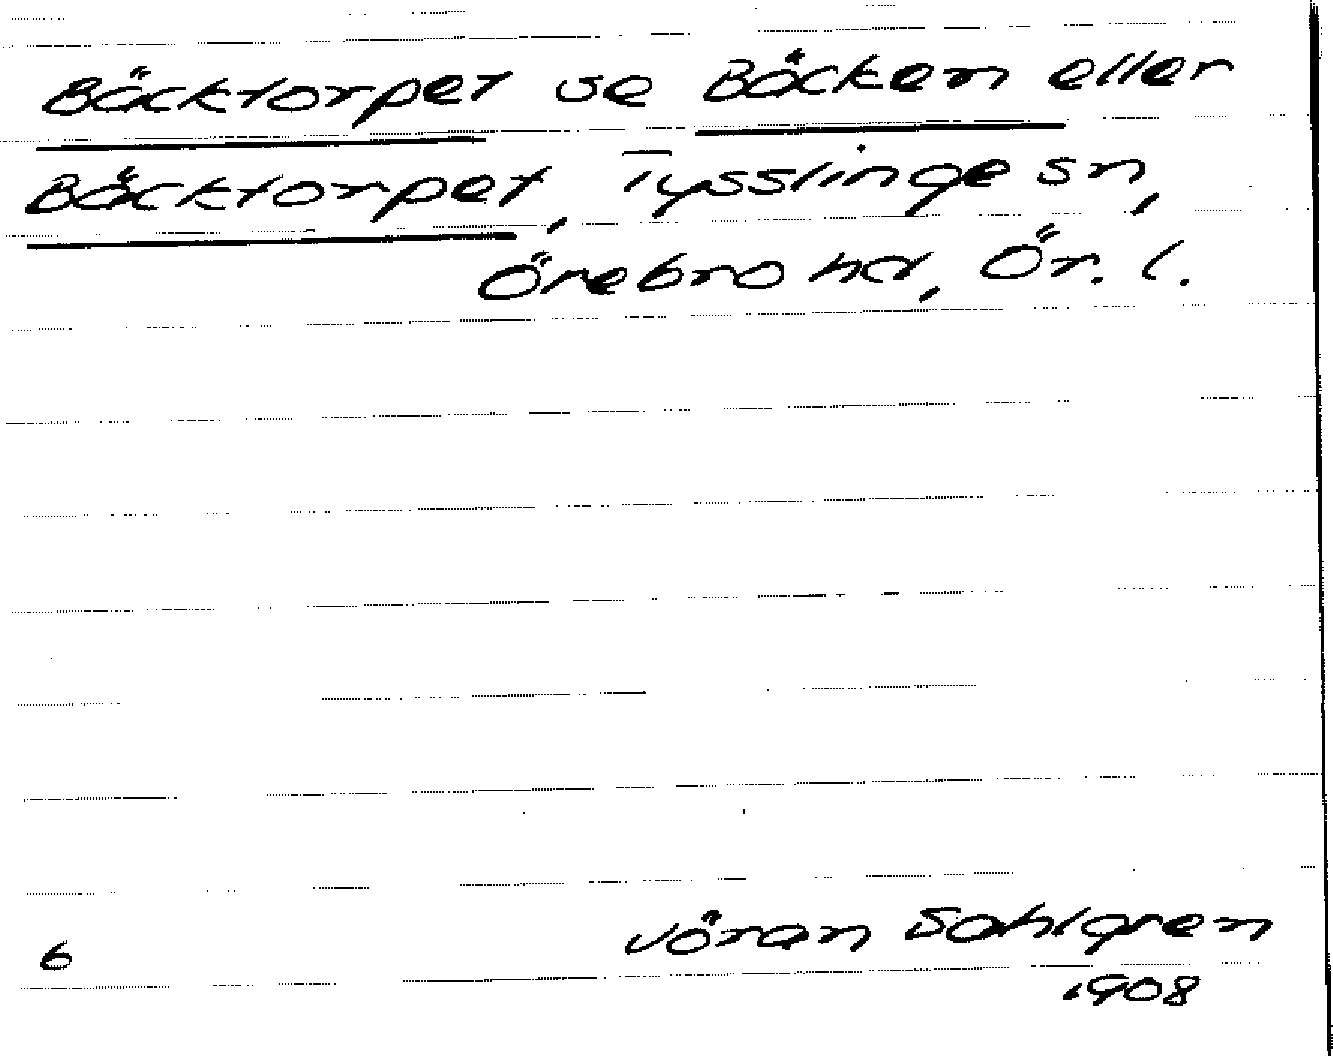 Bäcktorpet se Bäcken eller
Bäcktorpet, Tysslinge sn,
Örebro hd, Ör. l.
6
Jöran Sahlgren
1908